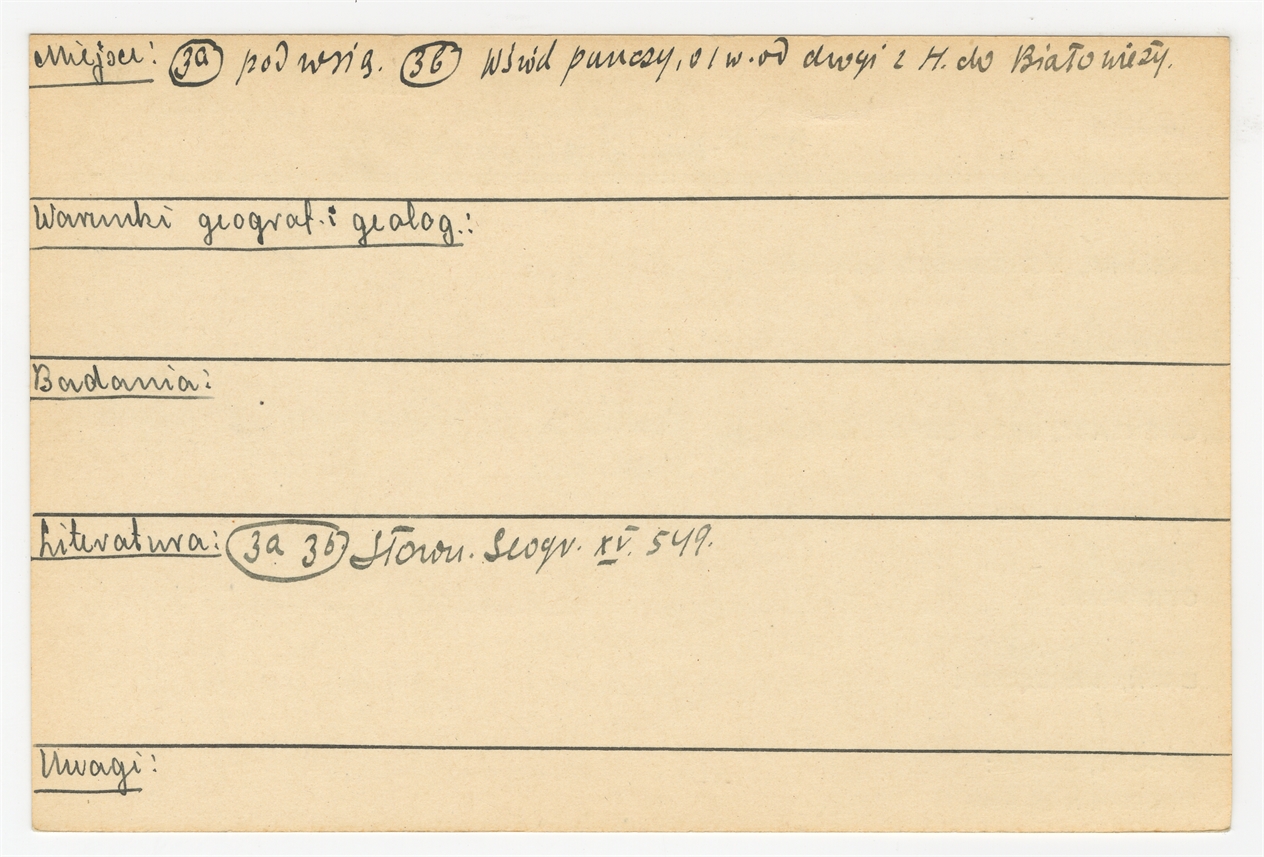 Miejsce: 3a pod wsią. 3b Wśród puszczy, o 1 w. od drogi z H. do Białowieży.
Warunki geograf. i geolog.:
Badania:
Literatura: 3a 3b Słown. Geogr. XV. 549.
Uwagi: